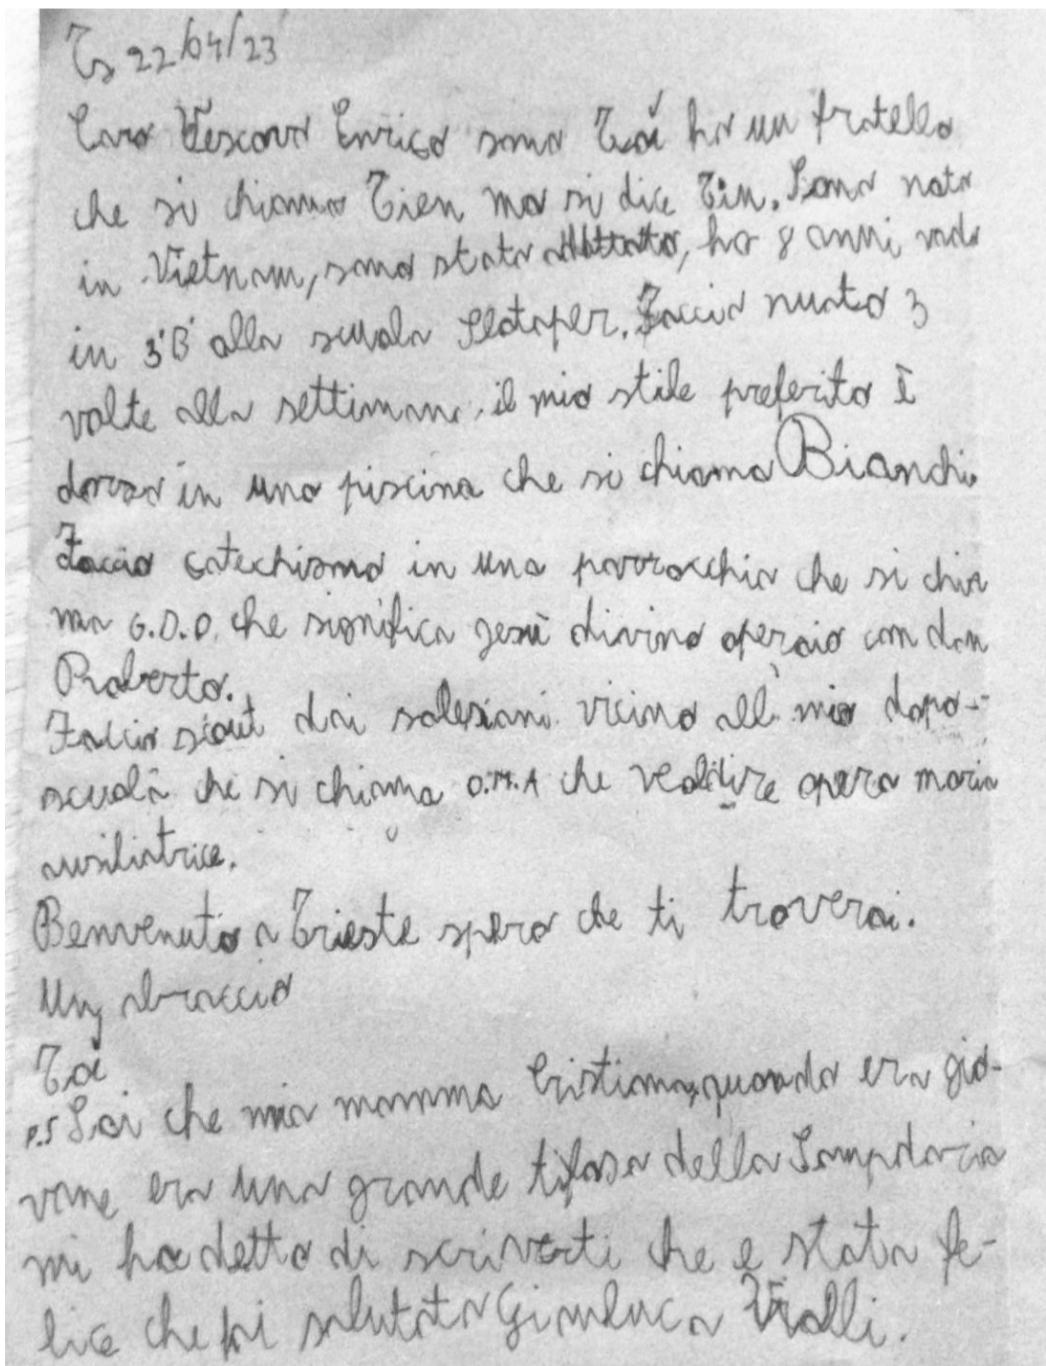 Ts 22/04/23
Caro Vescovo Enrico sono Tai ho un fratello
che si chiama Tien ma si dice Tin. Sono nato
in Vietnam, sono stato adottato, ho 8 anni vado
in 3'B' alla scuola Slataper. Faccio nuoto 3
volte alla settimana. il mio stile preferito È
dorso in una piscina che si chiama Bianchi.
Faccio catechismo in una parrocchia che si chia
ma G.D.O. che significa gesù divino operaio con don
Roberto.
Faccio scout dai salesiani vicino all mio dopo-
scuola che si chiama O.M.A che vealdire opera maria
ausiliatrice.
Benvenuto a Trieste spero che ti troverai.
Un abraccio
Tai
P.S Sai che mia mamma Cristiana, quando era gio-
vane era una grande tifosa della Sampdoria
mi ha detto di scriverti che e stata fe-
lice che salutato Gianluca Vialli.